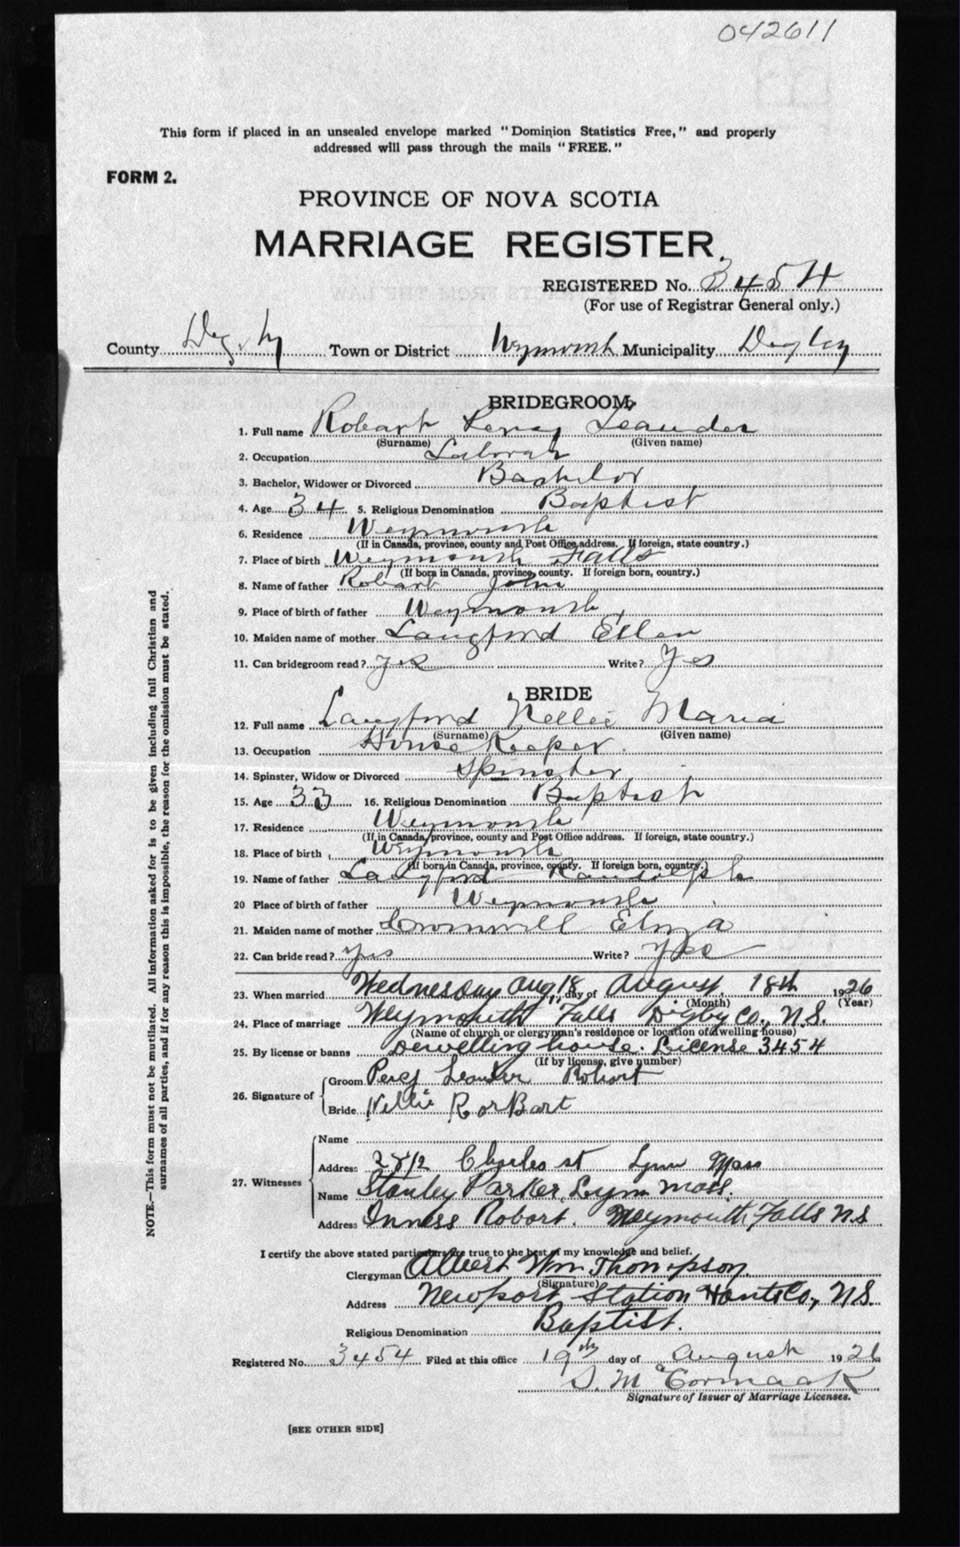 042611
This form if placed in an unsealed envelope marked "Dominion Statistics Free," and properly
addressed will pass through the mails "FREE."
FORM 2.
PROVINCE OF NOVA SCOTIA
MARRIAGE REGISTER.
REGISTERED No. 3454
(For use of Registrar General only.)
County Digby Town or District Weymouth Municipality Digby
BRIDEGROOM
1. Full name Robart Leander
(Surname) (Given name)
2. Occupation Laborar
3. Bachelor, Widower or Divorced Bachelor
4. Age 34 5. Religious Denomination Baptist
6. Residence Weymouth
(If in Canada, province, county and Post Office address. If foreign, state country.)
7. Place of birth Weymouth Falls
(If born in Canada, province, county. If foreign born, country.)
8. Name of father Robart John
9. Place of birth of father Weymouth
10. Maiden name of mother Langford Ellen
11. Can bridegroom read? Yes Write? Yes
BRIDE
12. Full name Langford Nellie Maria
(Surname) (Given name)
13. Occupation House Keeper
14. Spinster, Widow or Divorced Spinster
15. Age 33 16. Religious Denomination Baptist
17. Residence Weymouth
(If in Canada, province, county and Post Office address. If foreign, state country.)
18. Place of birth Weymouth
(If born in Canada, province, county. If foreign born, country.)
19. Name of father Langford Randolph
20 Place of birth of father Weymouth
21. Maiden name of mother Cromwell
22. Can bride read? Yes Write? Yes
23. When married Wednesday Aug, 18 day of August, 18th 1926
(Month) (Year)
24. Place of marriage Weymouth Falls Digby Co., N.S.
(Name of church or clergyman's residence or location of dwelling house)
25. By license or banns Dewelling house. License 3454
(If by license, give number)
26. Signature of
Groom Percy Leander Robart
Bride Nellie RorBart
27. Witnesses
Name
Address Lynn Mass
Name Stanley Parker, Lynn Mass.
Address Inness Robart. Weymouth Falls N.S
I certify the above stated particulars are true to the best of my knowledge and belief.
Clergyman Albert Wm Thompson.
(Signature)
Address Newport Station Hants Co., N.S.
Religious Denomination Baptist.
Registered No. 3454 Filed at this office 19th day of August 1926
S. McCormack
Signature of Issuer of Marriage Licenses.
[SEE OTHER SIDE]
NOTE.—This form must not be mutilated. All information asked for is to be given including full Christian and
surnames of all parties, and if for any reason this is impossible, the reason for the omission must be stated.